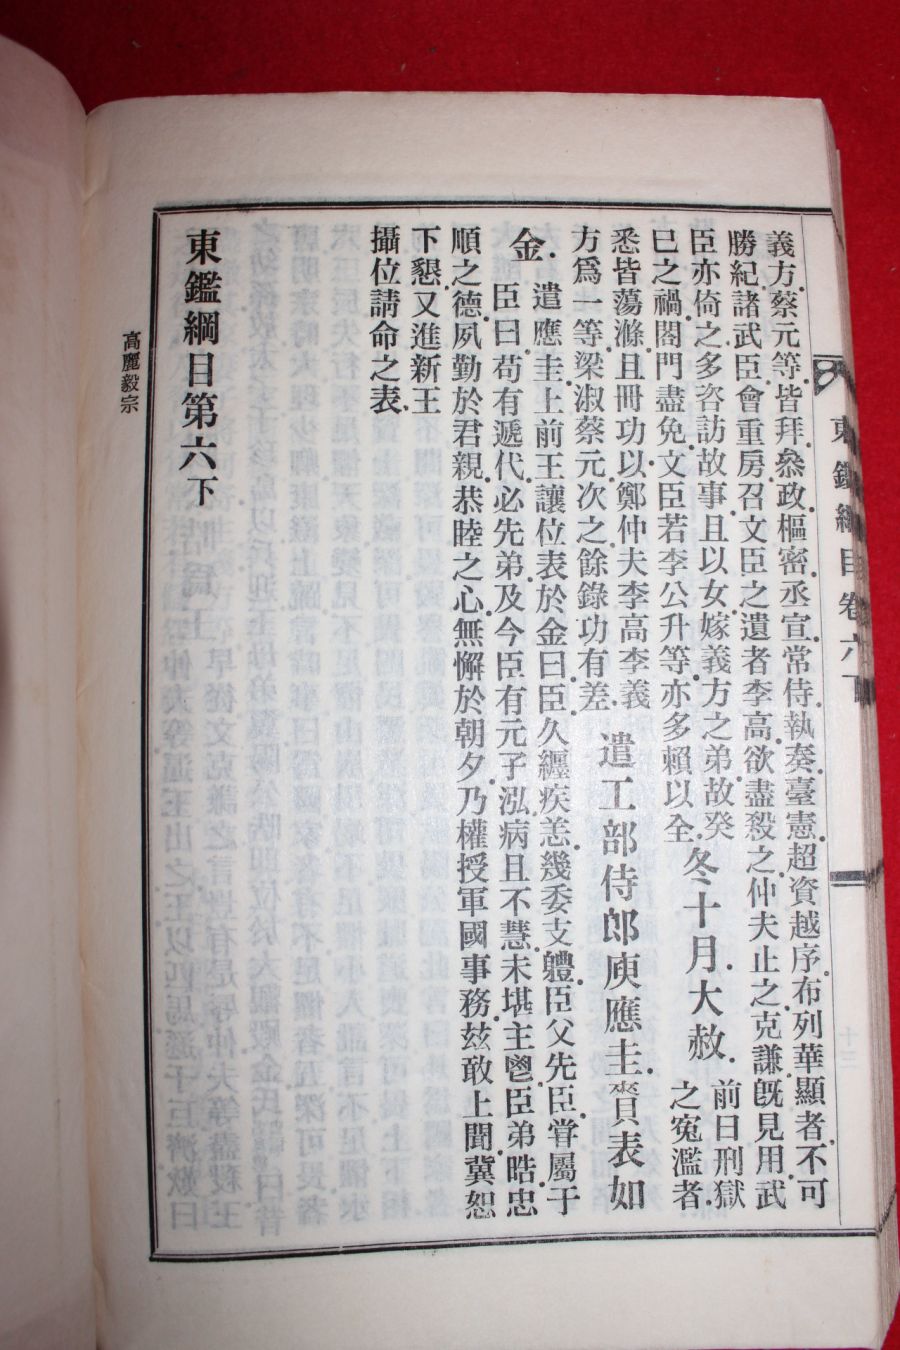 東鑑綱目卷六下
義方.蔡元等.皆拜.叅政樞密.丞宣.常侍.執奏.臺憲.超資越序.布列華顯者.不可
勝紀.諸武臣.會重房.召文臣之遺者.李高.欲盡殺之.仲夫止之.克謙旣見用.武
臣亦倚之.多咨訪故事.且以女嫁義方之弟.故癸
巳之禍.闔門盡免.文臣若李公升等.亦多賴以全.
冬十月.大赦.
前日刑獄
之寃濫者.
悉皆蕩滌.且冊功.以鄭仲夫李高李義
方爲一等.梁淑蔡元次之.餘錄功有差.
遣工部侍郎庾應圭.賫表如
金.
遣應圭.上前王讓位表於金曰.臣久纏疾恙.幾委支軆.臣父先臣.甞屬于
臣曰.苟有遞代.必先弟及.今臣有元子泓.病且不慧.未堪主鬯.臣弟晧.忠
順之德.夙勤於君親.恭睦之心.無懈於朝夕.乃權授軍國事務.玆敢上聞.冀恕
下懇.又進新王
攝位請命之表.
東鑑綱目第六下
高麗毅宗